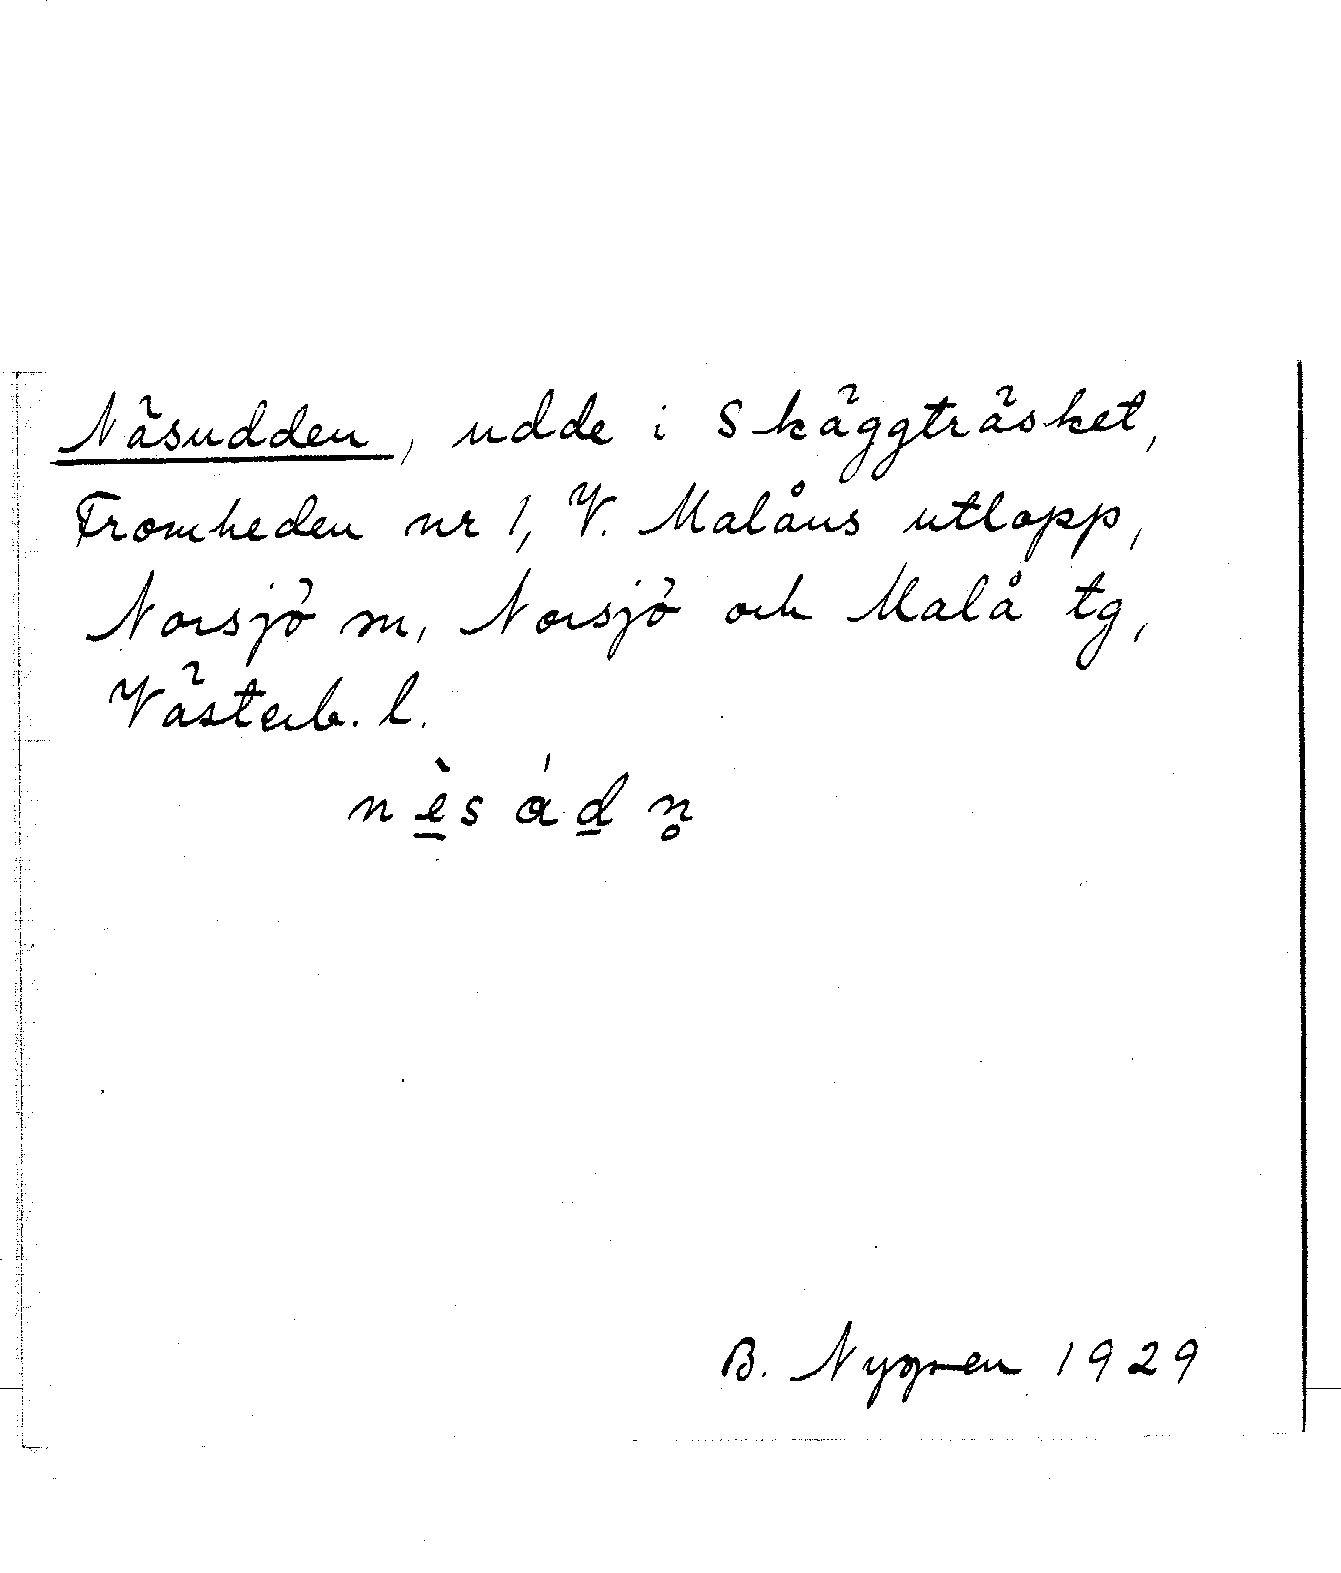 Näsudden, udde i Skäggträsket,
Fromheden nr 1, V. Malåns utlopp,
Norsjö sn, Norsjö och Malå tg,
Västerb. l.
nè̱s áḏ n̥
B. Nygren 1929